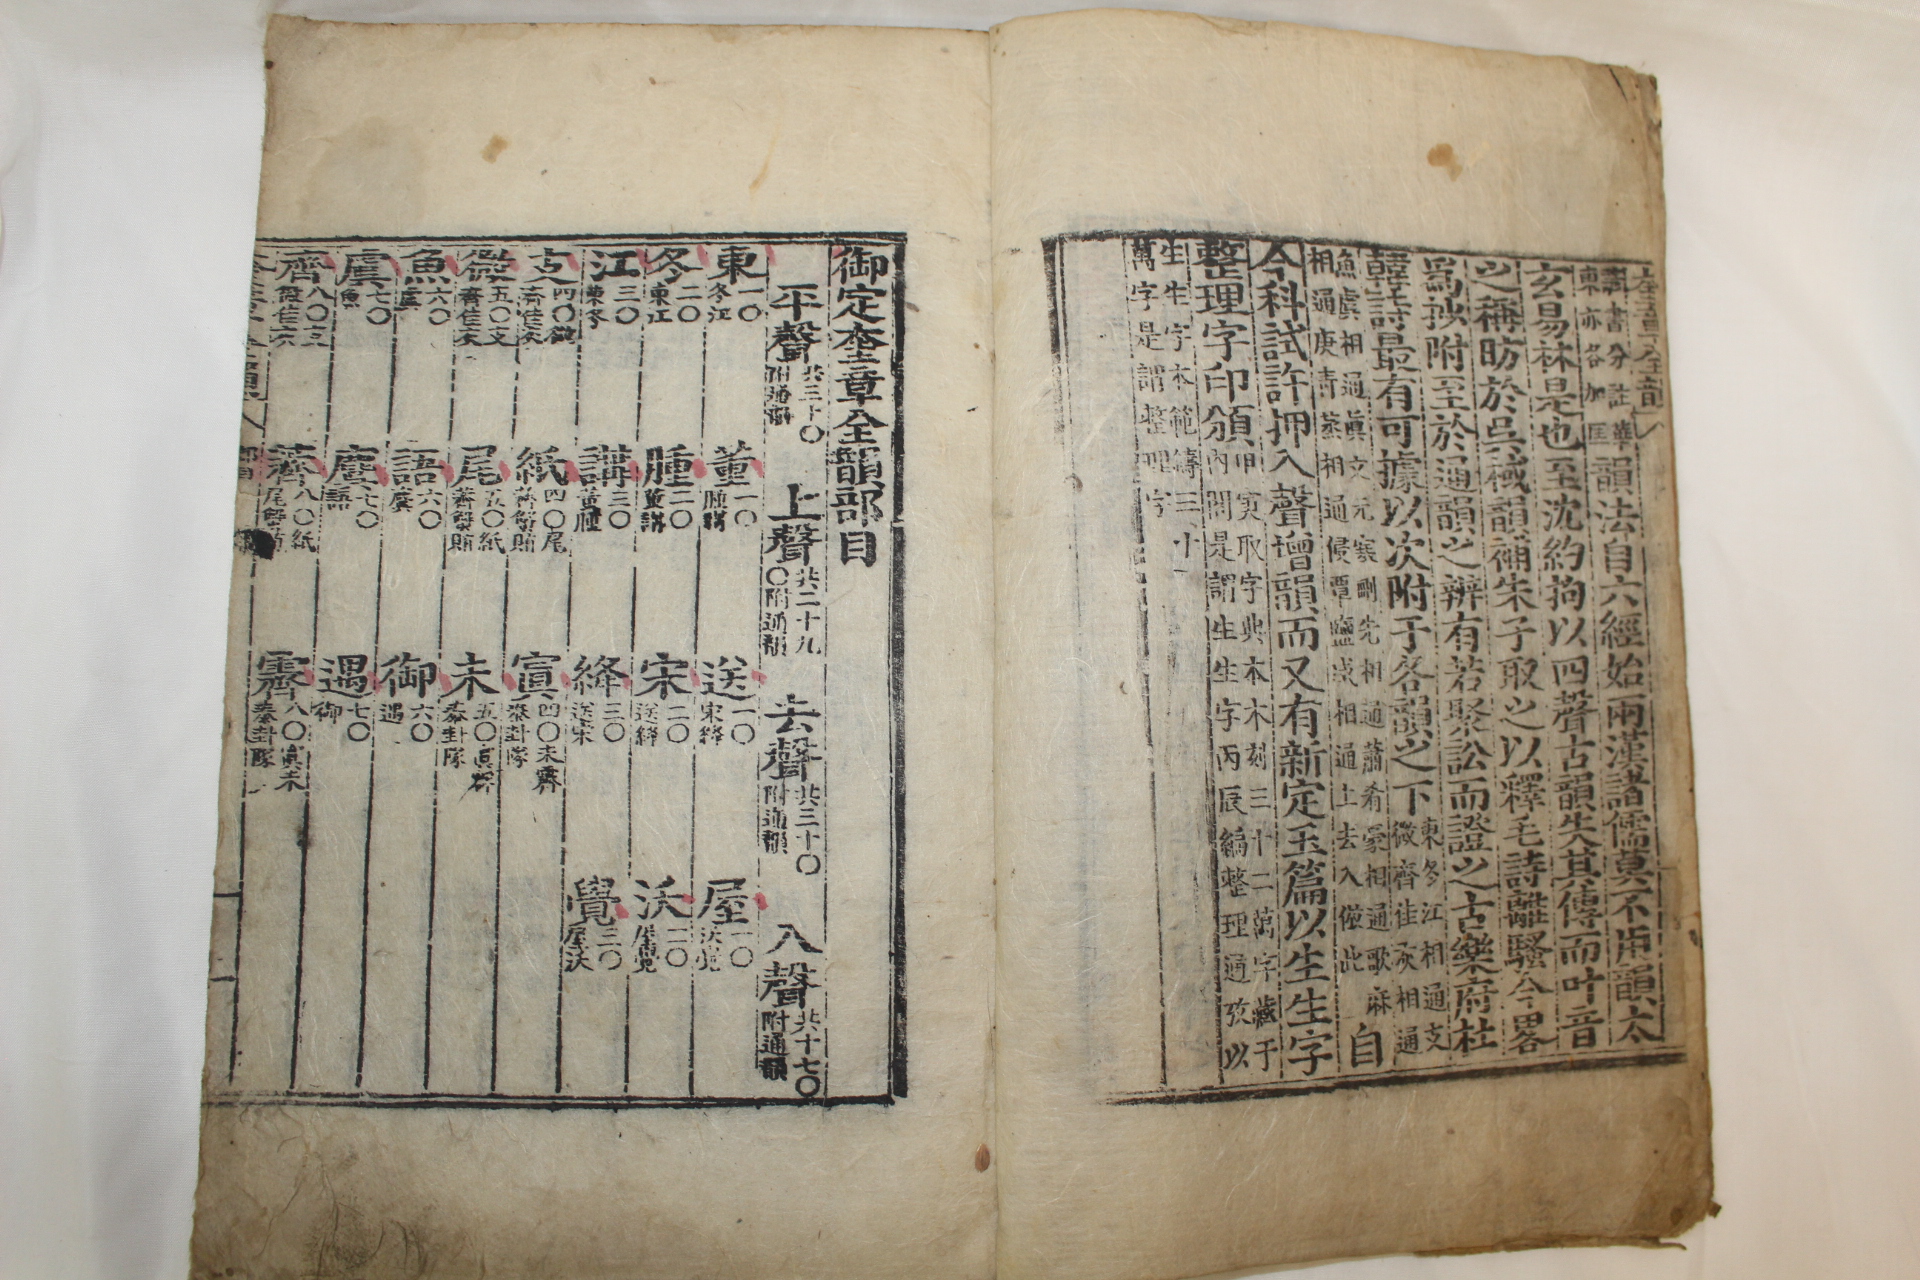 奎章全韻
韻書分註華
東亦各加匡 韻法自六經始兩漢諸儒莫不用韻太
玄易林是也至沈約拘以四聲古韻失其傳而叶音
之稱昉於吳棫韻補朱子取之以釋毛詩離騷今畧
爲抄附至於通韻之辨有若聚訟而證之古樂府杜
韓詩最有可據以次附于各韻之下
東冬江相通支
微齊佳灰相通
魚虞相通眞文元寒刪先相通蕭肴豪相通歌麻
相通庚靑蒸相通侵覃鹽咸相通上去入倣此 自
今科試許押入聲增韻而又有新定玉篇以生生字
整理字印頒
甲寅取字典本木刻三十二萬字藏于
內閣是謂生生字丙辰編整理通攷以
生生字本範鑄三十
萬字是謂整理字
御定奎章全韻部目
平聲 共三十○ 附通韻
上聲 共二十九 ○附通韻
去聲 共三十○ 附通韻
入聲 共十七○ 附通韻
東 一○ 冬江
董 一○ 腫講
送 一○ 宋絳
屋 一○ 沃覺
冬 二○ 東江
腫 二○ 董講
宋 二○ 送絳
沃 二○ 屋覺
江 三○ 東冬
講 三○ 董腫
絳 三○ 送宋
覺 三○ 屋沃
支 四○微 齊佳灰
紙 四○尾 薺蟹賄
寘 四○未霽 泰卦隊
微 五○支 齊佳灰
尾 五○紙 薺蟹賄
未 五○寘霽 泰卦隊
魚 六○ 虞
語 六○ 麌
御 六○ 遇
虞 七○ 魚
麌 七○ 語
遇 七○ 御
齊 八○支 微佳灰
薺 八○紙 尾蟹賄
霽 八○寘未 泰卦隊
奎章全韻
部目